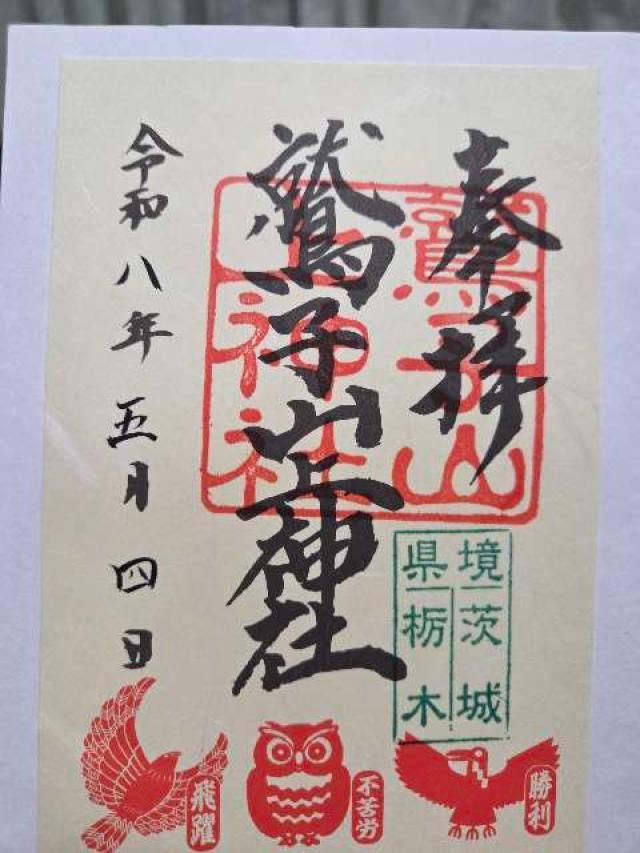 奉拝
鷲子山上神社
令和八年五月四日
鷲子山
上神社
境茨城
県栃木
飛躍
不苦労
勝利